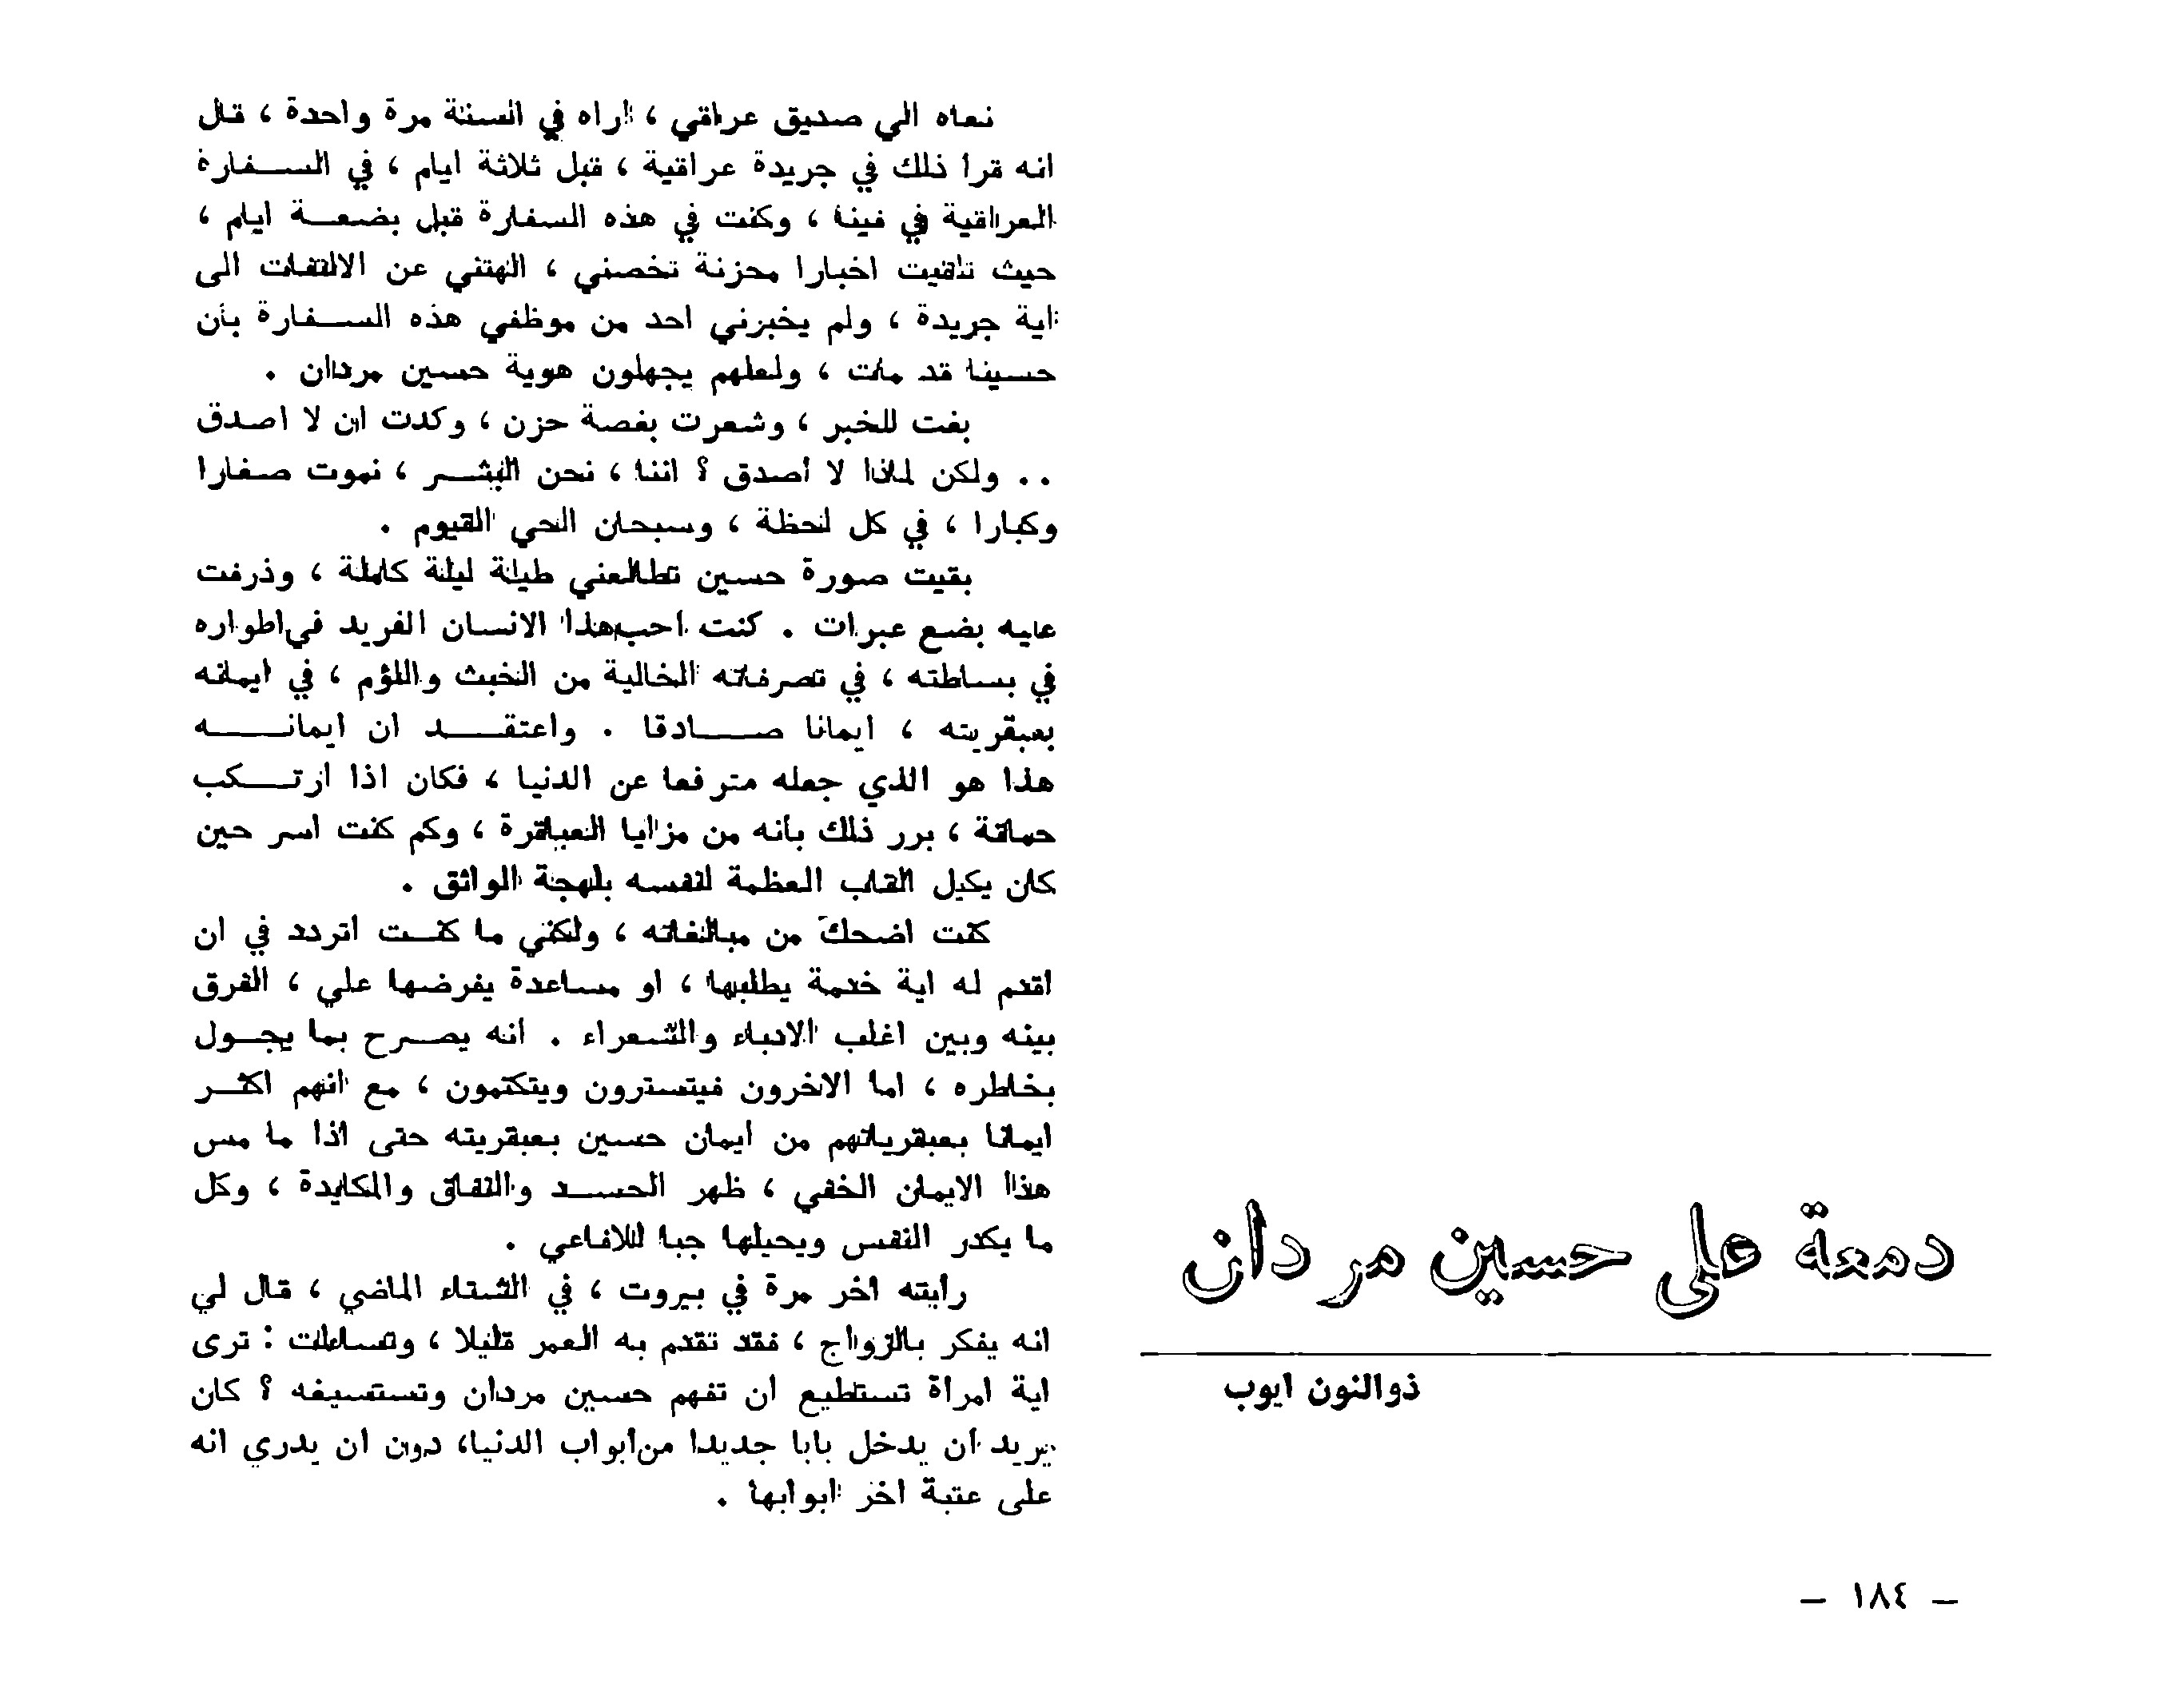 دمعة على حسين مردان
ذوالنون ايوب
– ١٨٤ –
نعاه الي صديق عراقي ، اراه في السنة مرة واحدة ، قال
انه قرأ ذلك في جريدة عراقية ، قبل ثلاثة ايام ، في السفارة
العراقية في فينا ، وكنت في هذه السفارة قبل بضعة ايام ،
حيث تلقيت اخبارا محزنة تخصني ، الهتني عن الالتفات الى
اية جريدة ، ولم يخبرني احد من موظفي هذه السفارة بأن
حسينا قد مات ، ولعلهم يجهلون هوية حسين مردان .
بغت للخبر ، وشعرت بغصة حزن ، وكدت ان لا اصدق
. . ولكن لماذا لا أصدق ؟ اننا ، نحن البشر ، نموت صغارا
وكبارا ، في كل لحظة ، وسبحان الحي القيوم .
بقيت صورة حسين تطالعني طيلة ليلة كاملة ، وذرفت
عليه بضع عبرات . كنت احب هذا الانسان الفريد في اطواره
في بساطته ، في تصرفاته الخالية من الخبث واللؤم ، في ايمانه
بعبقريته ، ايمانا صادقا . واعتقد ان ايمانه
هذا هو الذي جعله مترفعا عن الدنيا ، فكان اذا ارتكب
حماقة ، برر ذلك بأنه من مزايا العباقرة ، وكم كنت اسر حين
كان يكيل القاب العظمة لنفسه بلهجة الواثق .
كنت اضحك من مبالغاته ، ولكني ما كنت اتردد في ان
اقدم له اية خدمة يطلبها ، او مساعدة يفرضها علي ، الفرق
بينه وبين اغلب الادباء والشعراء . انه يصرح بما يجول
بخاطره ، اما الاخرون فيتسترون ويتكتمون ، مع انهم اكثر
ايمانا بعبقرياتهم من ايمان حسين بعبقريته حتى اذا ما مس
هذا الايمان الخفي ، ظهر الحسد والنفاق والمكايدة ، وكل
ما يكدر النفس ويحيلها جبا للافاعي .
رأيته اخر مرة في بيروت ، في الشتاء الماضي ، قال لي
انه يفكر بالزواج ، فقد تقدم به العمر قليلا ، وتساءلت : ترى
اية امرأة تستطيع ان تفهم حسين مردان وتستسيغه ؟ كان
يريد ان يدخل بابا جديدا من ابواب الدنيا، دون ان يدري انه
على عتبة اخر ابوابها .